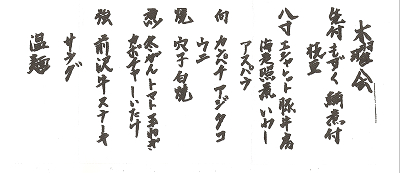 木曜会
先付 もずく 鯛煮付
枝豆
八寸 エシャレット 豚牛蒡
海老照煮 いわし
アスパラ
向 カンパチ アジ タコ
ウニ
煮 冬がん トマト 玉ねぎ
カボチャ しいたけ
焼 穴子白焼
強 前沢牛ステーキ
サラダ
温麺